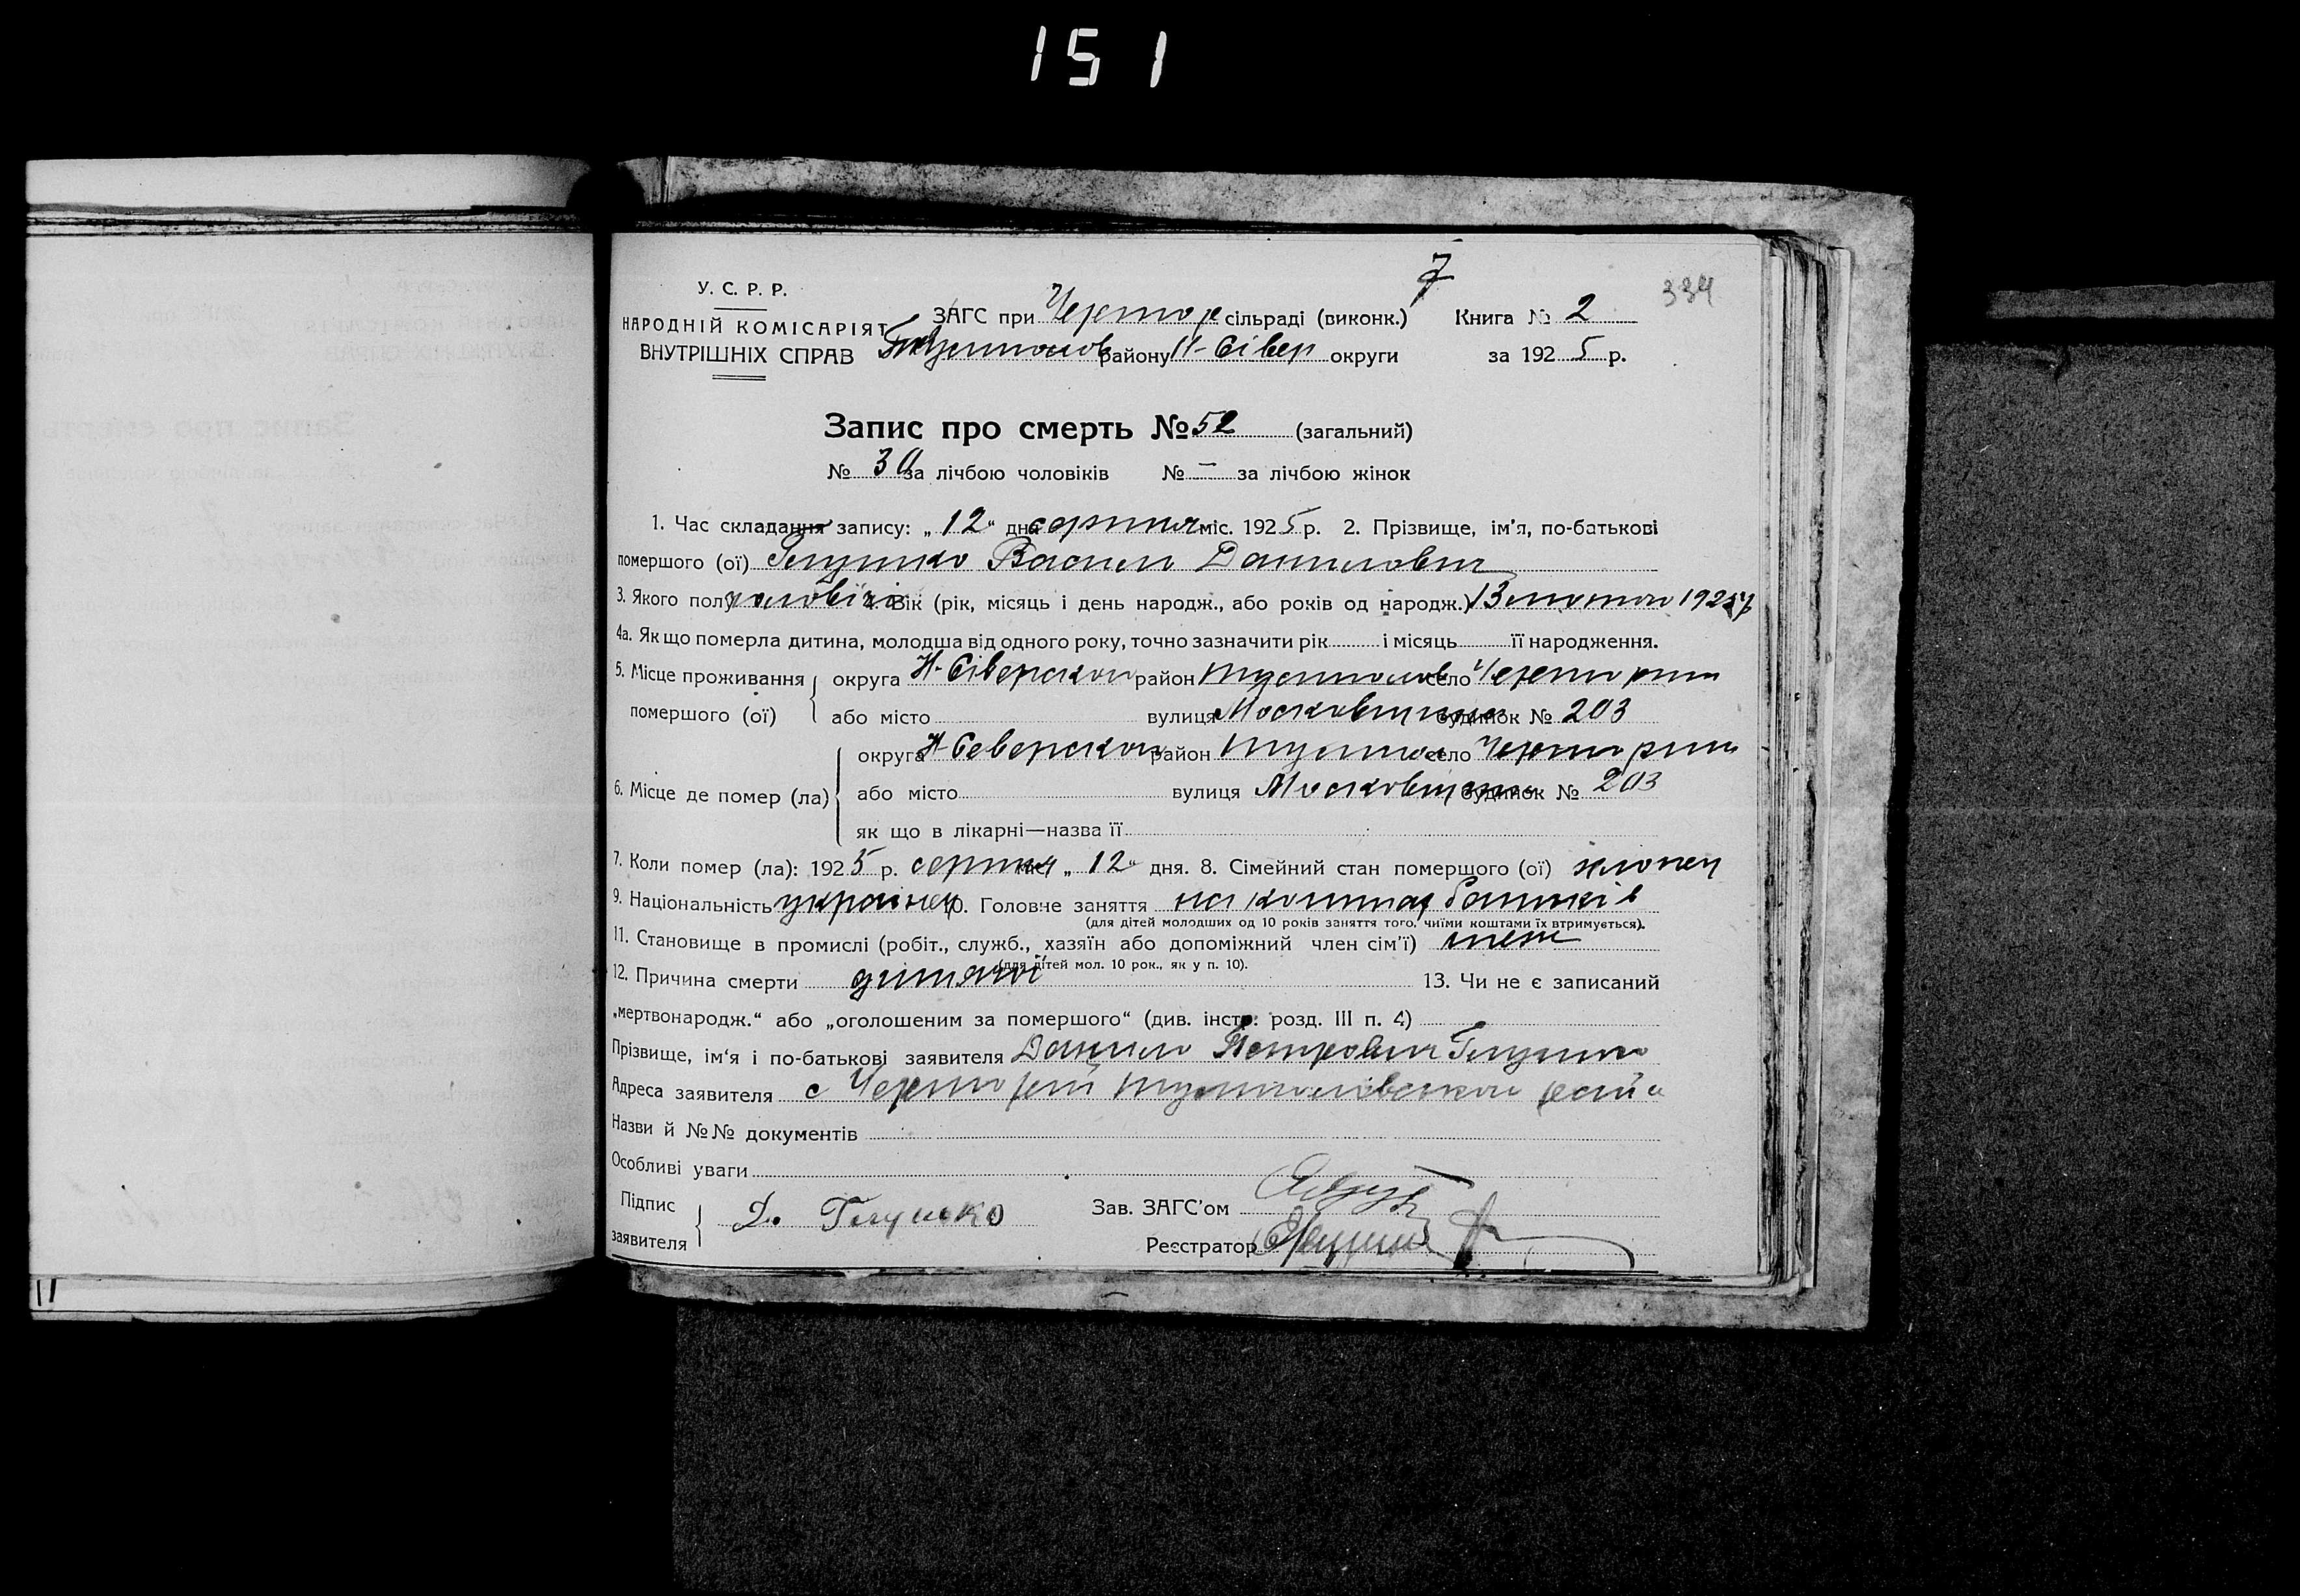 151
7
334
У. С. Р. Р.
НАРОДНІЙ КОМІСАРІЯТ
ВНУТРІШНІХ СПРАВ
ЗАГС при сільраді (виконк.) Книга № 2
району Н-Сівер округи за 1925 р.
Запис про смерть № 52 (загальний)
№ 30 за лічбою чоловіків № — за лічбою жінок
1. Час складання запису: „12“ дня серпня міс. 1925 р. 2. Прізвище, ім'я, по-батькові
помершого (ої) Глушко Василь Данилович
3. Якого полу чоловічого Вік (рік, місяць і день народж., або років од народж.) 13 лютого
4а. Як що померла дитина, молодша від одного року, точно зазначити рік і місяць її народження.
5. Місце проживання помершого (ої) округа Н-Сіверская район село
або місто вулиця Московщина будинок № 203
6. Місце де помер (ла) округа Н-Северская район село
або місто вулиця Московщина будинок № 203
як що в лікарні—назва її
7. Коли помер (ла): 1925 р. серпня міс. „12“ дня. 8. Сімейний стан помершого (ої) хлопец
9. Національність украінец 10. Головне заняття на коштах батьків
(для дітей молодших од 10 років заняття того, чиїми коштами їх втримується).
11. Становище в промислі (робіт., служб., хазяїн або допоміжний член сім'ї) теж
(для дітей мол. 10 рок., як у п. 10).
12. Причина смерти 13. Чи не є записаний
„мертвонародж.“ або „оголошеним за помершого“ (див. інстр. розд. III п. 4)
Прізвище, ім'я і по-батькові заявителя Данило Петрович Глушко
Адреса заявителя с
Назви й №№ документів
Особливі уваги
Підпис заявителя Д. Глушко
Зав. ЗАГС'ом
Реєстратор